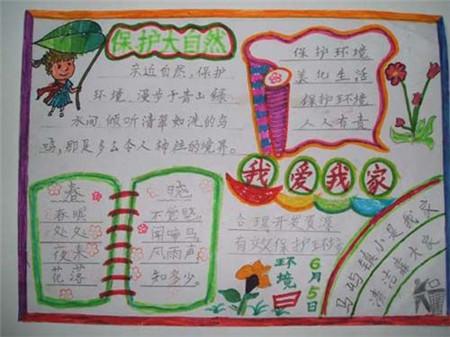 保护大自然
亲近自然,保护
环境,漫步于青山绿
水间,倾听清翠如洗的鸟
鸣,那是多么令人神往的境界。
保护环境
美化生活
保护环境
人人有责
我爱我家
春
春眠
处处
夜来
花落
晓
不觉晓。
闻啼鸟。
风雨声,
知多少。
合理开发资源
有效保护
环境日
6月5日
镇小是我家
清洁靠大家